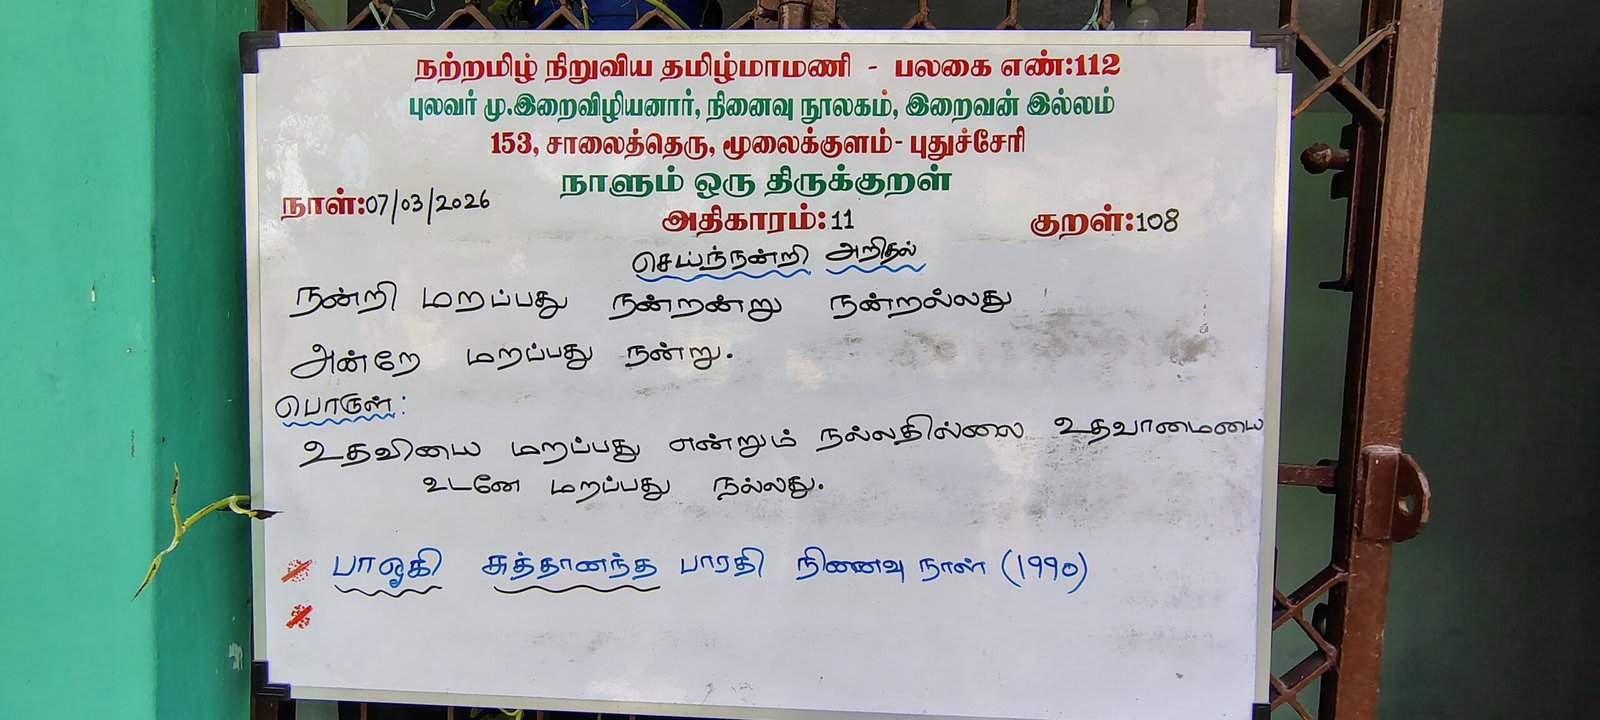 நற்றமிழ் நிறுவிய தமிழ்மாமணி - பலகை எண்:112
புலவர் மு.இறைவிழியனார், நினைவு நூலகம், இறைவன் இல்லம்
153, சாலைத்தெரு, மூலைக்குளம்- புதுச்சேரி
நாளும் ஒரு திருக்குறள்
நாள்:07/03/2026
அதிகாரம்:11 குறள்:108
செய்ந்நன்றி அறிதல்
நன்றி மறப்பது நன்றன்று நன்றல்லது
அன்றே மறப்பது நன்று.
பொருள்:
உதவியை மறப்பது என்றும் நல்லதில்லை உதவாமையை
உடனே மறப்பது நல்லது.
சுத்தானந்த பாரதி நினைவு நாள் (1990)